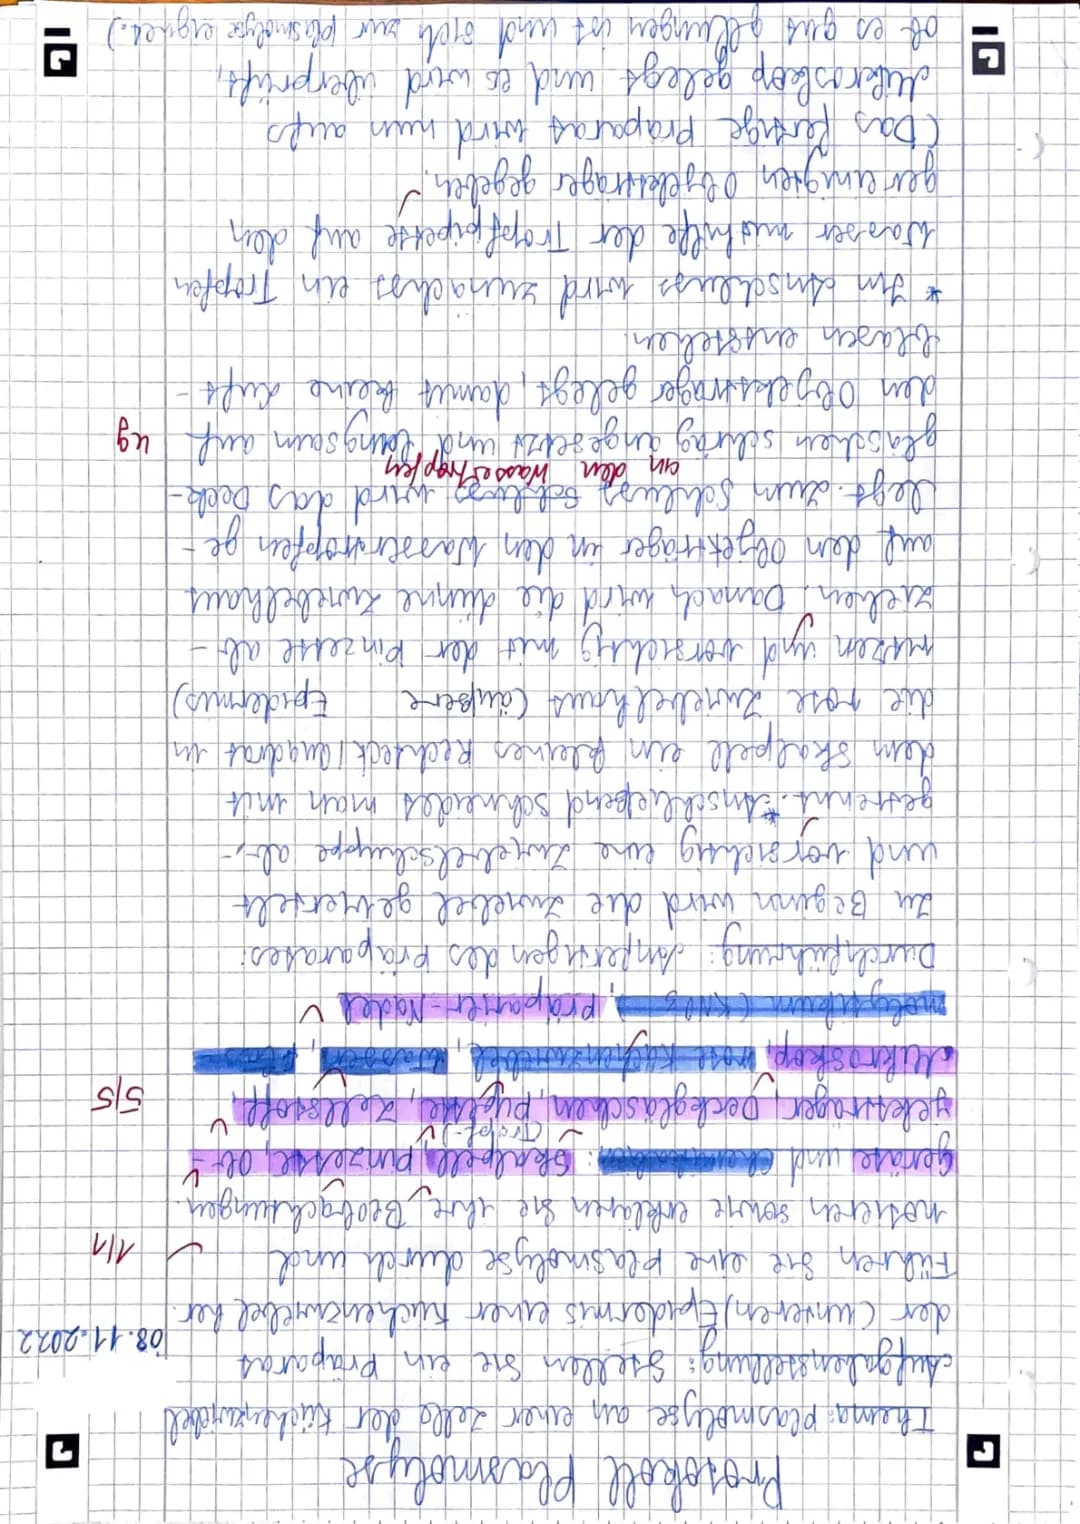 Protokoll Plasmolyse
Thema: Plasmolyse an einer Zelle der Küchenzwiebel
Aufgabenstellung: Stellen Sie ein Präparat
der (unteren) Epidermis einer Küchenzwiebel her. 08.11.2022
Führen Sie eine Plasmolyse durch und 1/1
notieren sowie erklären Sie ihre Beobachtungen.
Geräte und Chemikalien: Skalpell, Pinzette, Ob-
(Tropf-)
jektträger, Deckgläschen, Pipette, Zellstoff, 5/5
Mikroskop, rote Küchenzwiebel, Wasser,
(KNO3), Präparier-Nadel
Durchführung: Anfertigen des Präparates:
Zu Beginn wird die Zwiebel geviertelt
und vorsichtig eine Zwiebelschuppe ab-
getrennt.* Anschließend schneidet man mit
dem Skalpell ein kleines Rechteck/Quadrat in
die rote Zwiebelhaut (äußere Epidermis)
ritzen und vorsichtig mit der Pinzette ab-
ziehen. Danach wird die dünne Zwiebelhaut
auf dem Objektträger in den Wassertropfen ge-
legt. Zum Schluss wird das Deck-
an den Wassertropfen
gläschen schräg angesetzt und langsam auf ug
den Objektträger gelegt, damit keine Luft-
blasen entstehen.
* Im Anschluss wird zunächst ein Tropfen
Wasser mithilfe der Tropfpipette auf den
gereinigten Objektträger gegeben.
(Das fertige Präparat wird nun aufs
Mikroskop gelegt und es wird überprüft,
ob es gut gelungen ist und sich zur Plasmolyse eignet.)